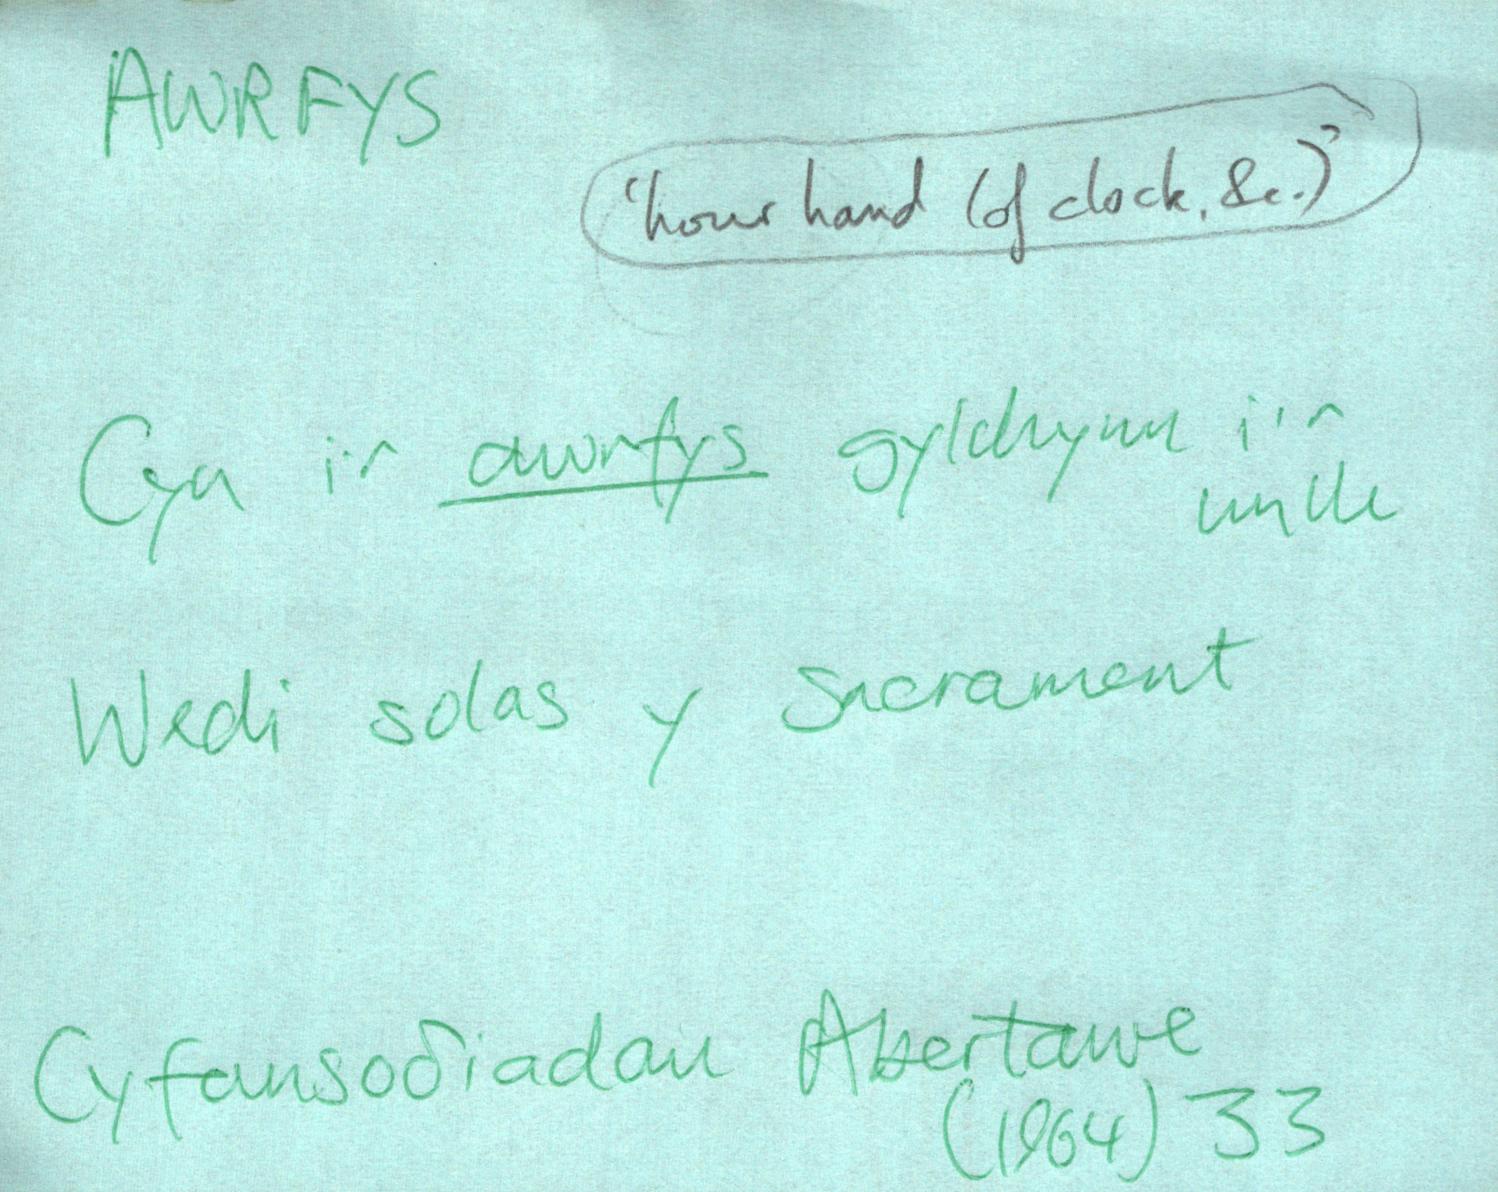 AWRFYS
'hour hand (of clock, &c.)'
Cyn i'r awrfys gylchynu i'r
unlle
Wedi solas y Sacrament
Cyfansoδiadau Abertawe
(1964) 33